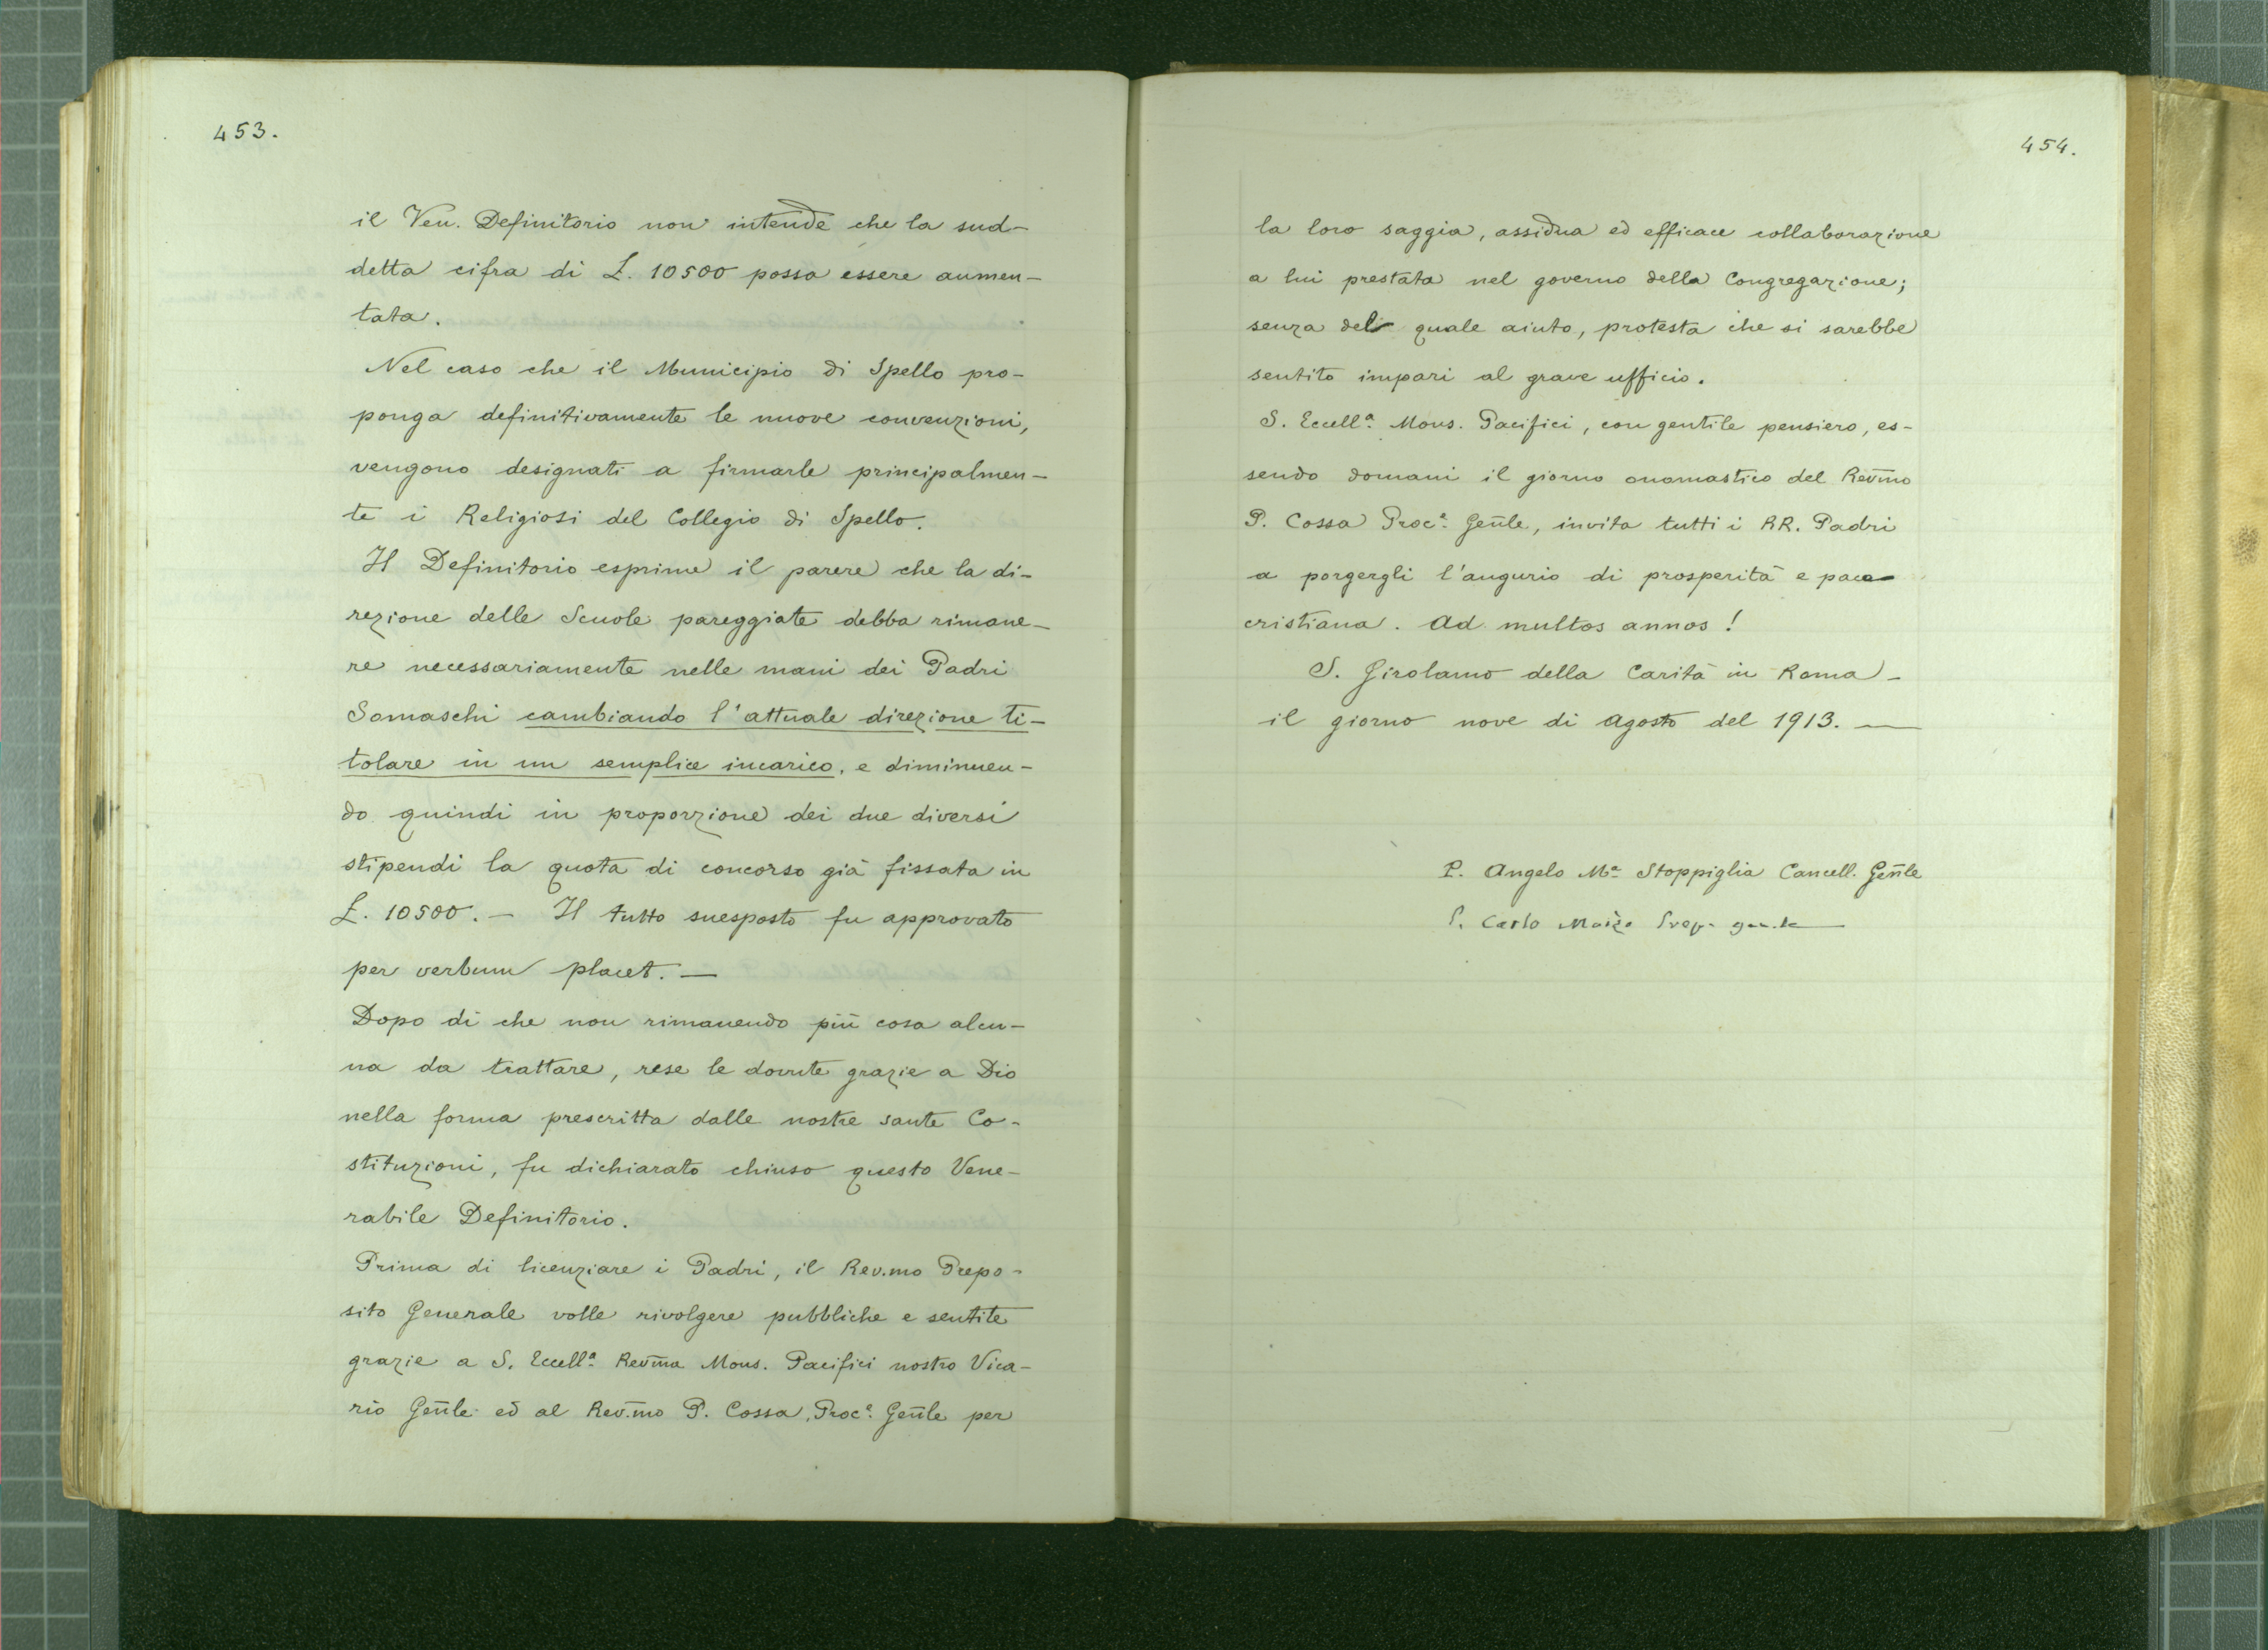 453.
il Ven. Definitorio non intende che la sud-
detta cifra di £. 10500 possa essere aumen-
tata.
Nel caso che il Municipio di Spello pro-
ponga definitivamente le nuove convenzioni,
vengono designati a firmarle principalmen-
te i Religiosi del Collegio di Spello.
Il Definitorio esprime il parere che la di-
rezione delle Scuole pareggiate debba rimane-
re necessariamente nelle mani dei Padri
Somaschi cambiando l'attuale direzione ti-
tolare in un semplice incarico, e diminuen-
do quindi in proporzione dei due diversi
stipendi la quota di concorso già fissata in
£. 10500. — Il tutto suesposto fu approvato
per verbum placet. —
Dopo di che non rimanendo più cosa alcu-
na da trattare, rese le dovute grazie a Dio
nella forma prescritta dalle nostre sante Co-
stituzioni, fu dichiarato chiuso questo Vene-
rabile Definitorio.
Prima di licenziare i Padri, il Rev.mo Prepo-
sito Generale volle rivolgere pubbliche e sentite
grazie a S. Eccellª. Rev̄ma Mons. Pacifici nostro Vica-
rio Gen̄le ed al Rev.mo P. Cossa, Procᵉ. Gen̄le per
454.
la loro saggia, assidua ed efficace collaborazione
a lui prestata nel governo della Congregazione;
senza del quale aiuto, protesta che si sarebbe
sentito impari al grave ufficio.
S. Eccellª. Mons. Pacifici, con gentile pensiero, es-
sendo domani il giorno onomastico del Rev̄mo
P. Cossa Procᵉ. Gen̄le, invita tutti i RR. Padri
a porgergli l'augurio di prosperità e pace
cristiana. Ad multos annos!
S. Girolamo della Carità in Roma -
il giorno nove di Agosto del 1913. —
P. Angelo Mª Stoppiglia Cancell. Gen̄le
P. Carlo Moizo Prep. gen.le